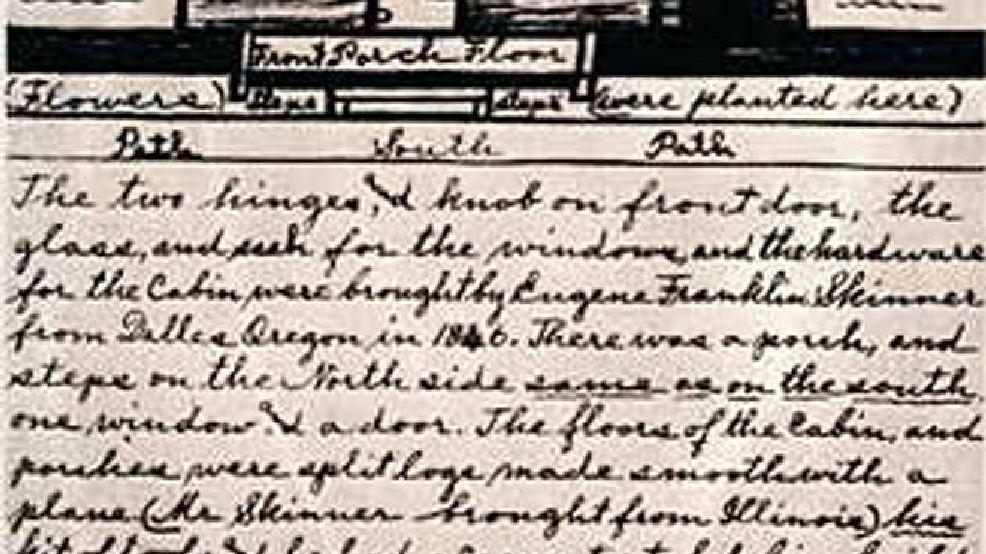 Front Porch Floor
(Flowers) Steps steps (were planted here)
Path South Path
The two hinges, & knob on front door, the
glass, and sash for the windows, and the hardware
for the Cabin were brought by Eugene Franklin Skinner
from Dalles Oregon in 1846. There was a porch, and
steps on the North side same as on the south
one window & a door. The floors of the Cabin, and
porches were split logs made smooth with a
plane (Mr Skinner brought from Illinois) his